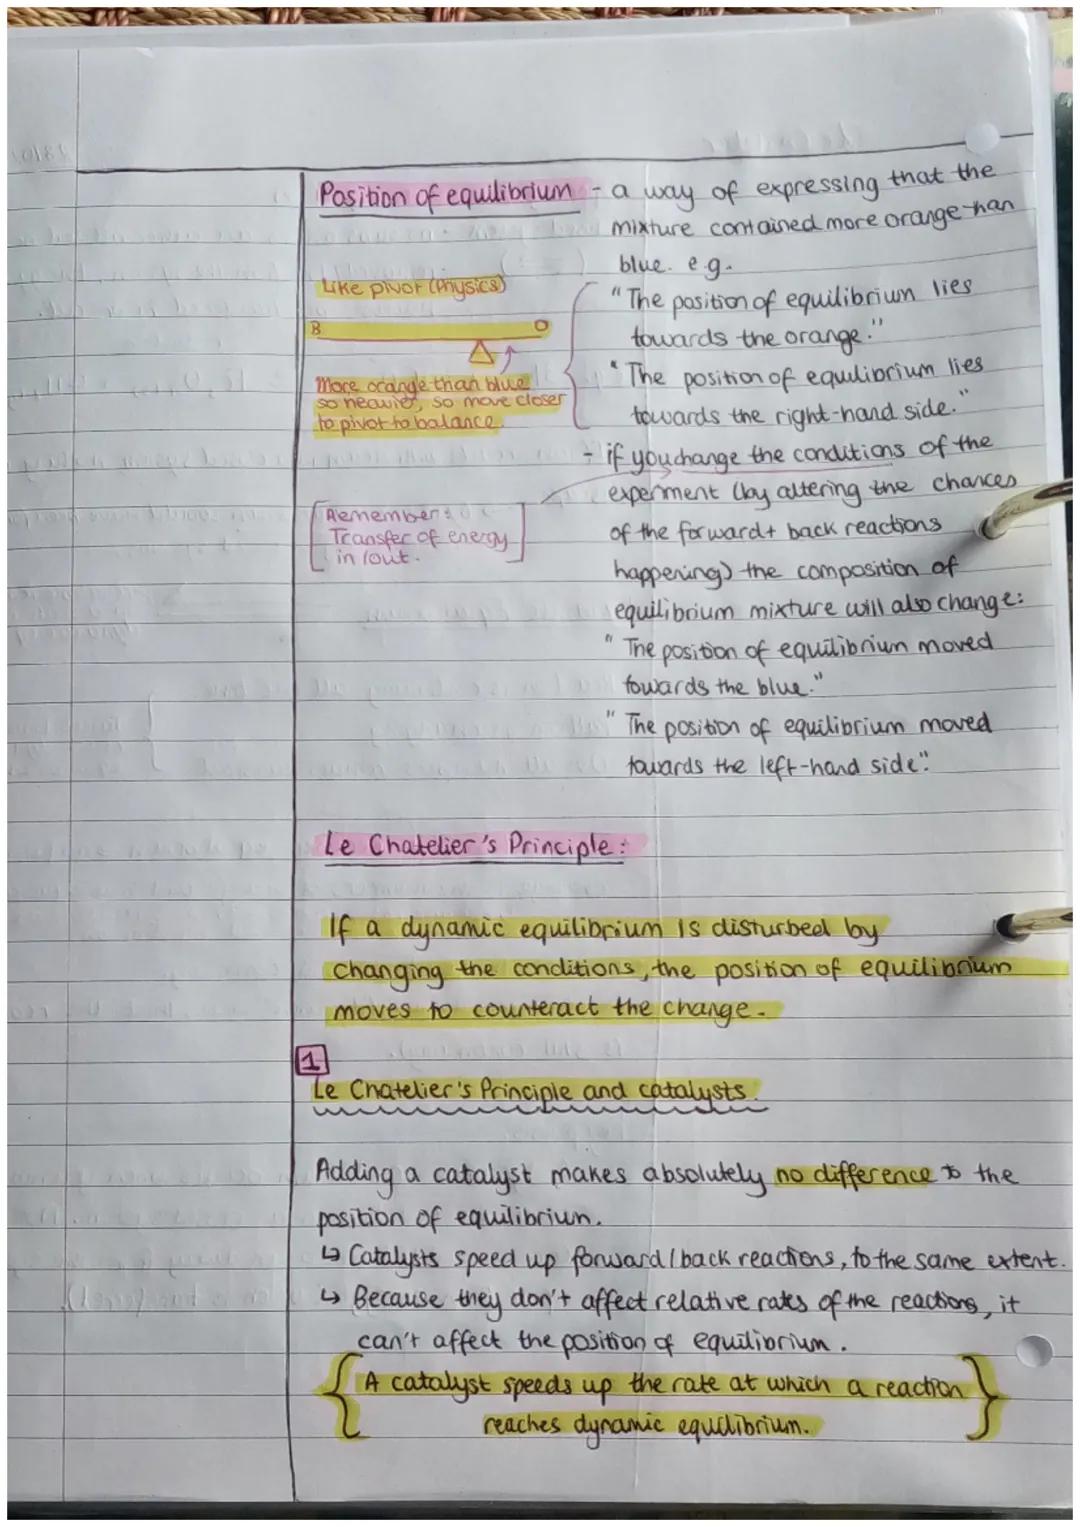 Position of equilibrium - a way of expressing that the
mixture contained more orange than
blue. e.g.
Like pivot (Physics)
"The position of equilibrium lies
towards the orange."
B O
"The position of equilibrium lies
towards the right-hand side."
More orange than blue
so heavier, so move closer
to pivot to balance.
- if you change the conditions of the
experiment (by altering the chances
of the forward + back reactions
happening) the composition of
equilibrium mixture will also change:
Remember:
Transfer of energy
in/out.
"The position of equilibrium moved
towards the blue."
"The position of equilibrium moved
towards the left-hand side".
Le Chatelier's Principle:
If a dynamic equilibrium is disturbed by
changing the conditions, the position of equilibrium
moves to counteract the change.
1
Le Chatelier's Principle and catalysts.
Adding a catalyst makes absolutely no difference to the
position of equilibrium.
↳ Catalysts speed up forward/back reactions, to the same extent.
↳ Because they don't affect relative rates of the reactions, it
can't affect the position of equilibrium.
{ A catalyst speeds up the rate at which a reaction }
reaches dynamic equilibrium.